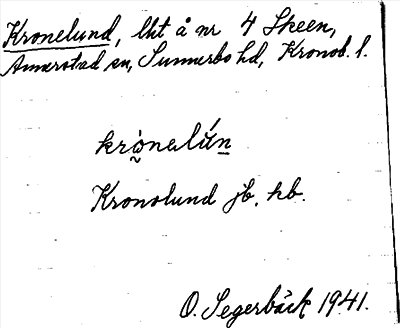 Kronelund, lht å nr 4 Skeen,
Annerstad sn, Sunnerbo hd, Kronob. l.
krò̰nalún̲
Kronolund jb, hb.
O. Segerbäck 1941.